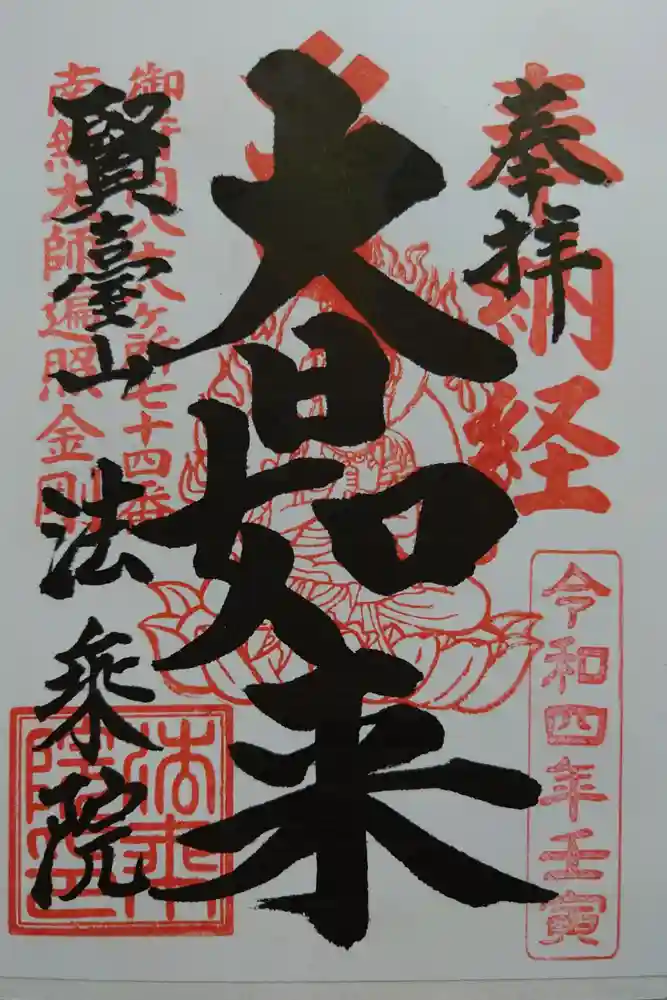 奉拝
奉納経
令和四年壬寅
大日如来
御府内八十八ヶ所七十四番
南無大師遍照金剛
賢臺山
法乗院
法乗
院